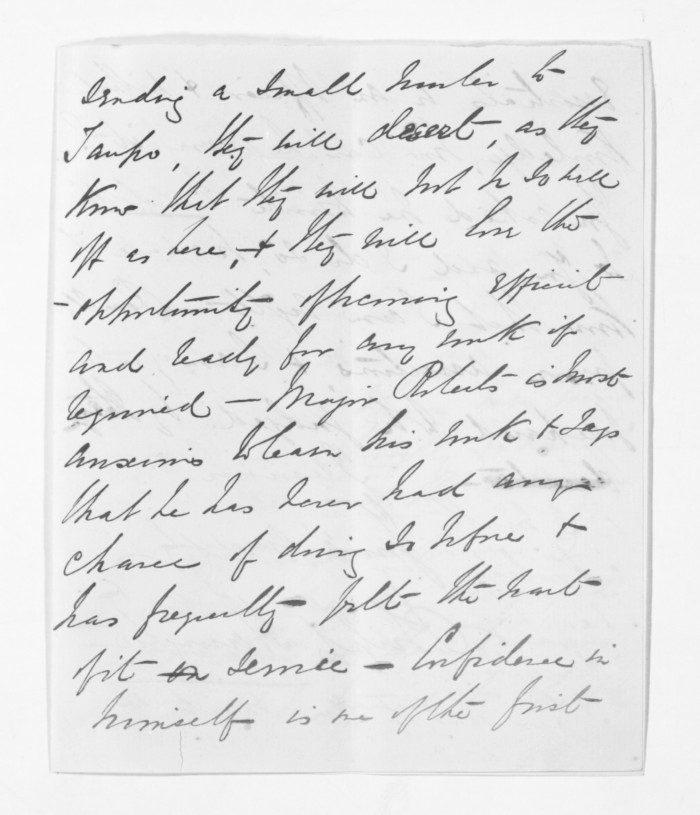 sending a small number to
Taupo, they will desert, as they
know that they will not be so well
off as here, & they will lose the
opportunity of becoming efficient
and ready for any work if
required — Major Roberts is most
anxious to learn his work & says
that he has never had any
chance of doing so before &
has frequently felt the want
of it on service — Confidence in
himself is one of the first